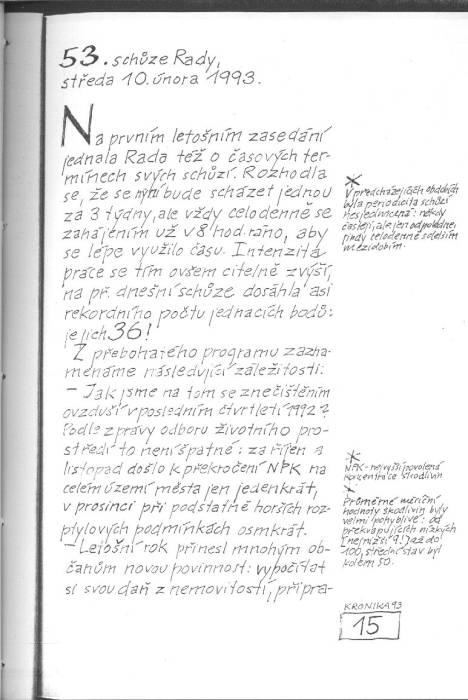 53. schůze Rady,
středa 10. února 1993.
Na prvním letošním zasedání
jednala Rada též o časových ter-
mínech svých schůzí. Rozhodla
se, že se nyní bude scházet jednou
za 3 týdny, ale vždy celodenně se
zahájením už v 8 hod. ráno, aby
se lépe využilo času. Intenzita
práce se tím ovšem citelně zvýší,
na př. dnešní schůze dosáhla asi
rekordního počtu jednacích bodů:
je jich 36!
Z přebohatého programu zazna-
menáme následující záležitosti:
– Jak jsme na tom se znečištěním
ovzduší v posledním čtvrtletí 1992?
Podle zprávy odboru životního pro-
středí to není špatné: za říjen a
listopad došlo k překročení NPK na
celém území města jen jedenkrát,
v prosinci při podstatně horších roz-
ptylových podmínkách osmkrát.
– Letošní rok přinesl mnohým ob-
čanům novou povinnost: vypočítat
si svou daň z nemovitostí, připra-
*
V předcházejících obdobích
byla periodicita schůzí
nesjednocená: někdy
častěji, ale jen odpoledne,
jindy celodenně s delším
mezidobím.
*
NPK - nejvyšší povolená
koncentrace škodlivin
*
Průměrné měsíční
hodnoty škodlivin byly
velmi pohyblivé: od
překvapujících nízkých
(nejnižší 9!) až do
100, střední stav byl
kolem 50.
KRONIKA 93
15